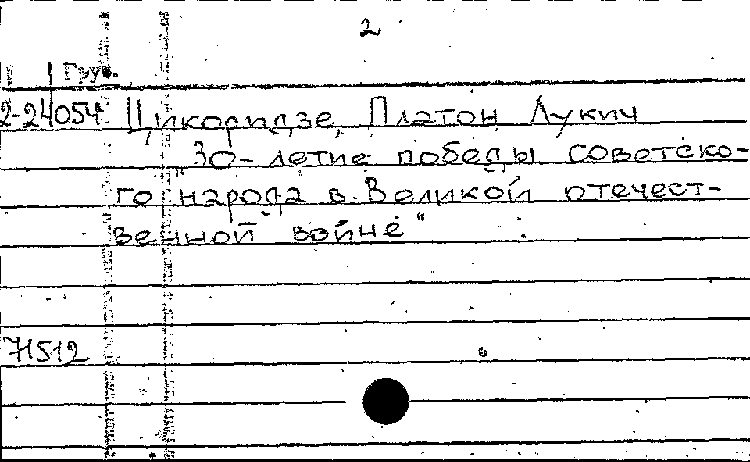 2
Груз.
2-24054 Цикоридзе, Платон Лукич
"30-летие победы советско-
го народа в Великой отечест-
венной войне"
71512